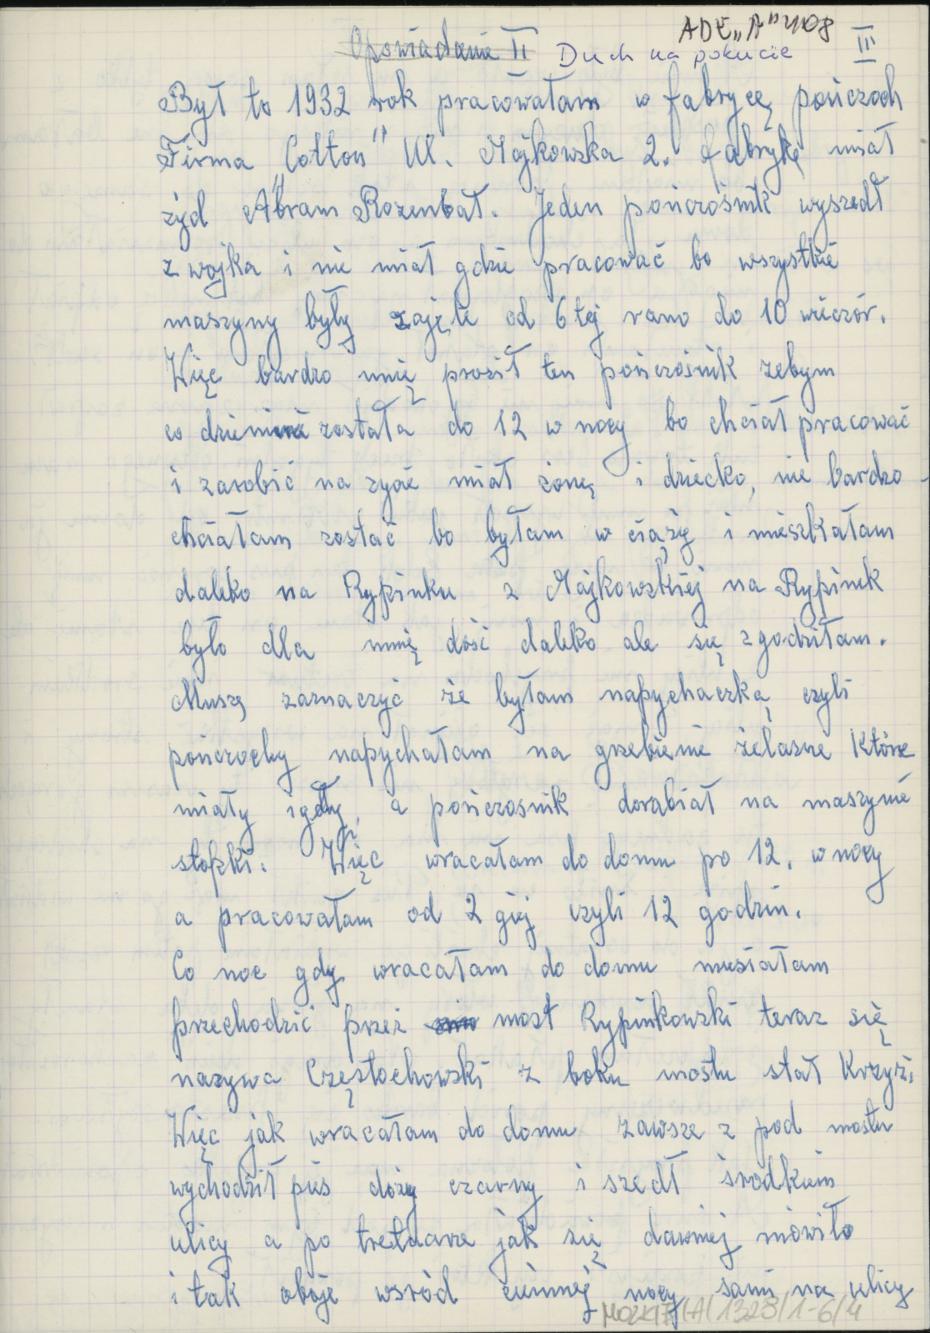 ADE „A" 408
Opowiadanie II Duch na pokucie III
Był to 1932 rok pracowałam w fabrycę pończoch
Firma „Cotton" Ul. Majkowska 2. fabrykę miał
żyd Abram Rozenbat. Jeden pończośnik wyszedł
z wojka i nie miał gdzie pracować bo wszystkie
maszyny były zajęte od 6tej rano do 10 wieczór.
Więc bardzo mnię prosił ten pończośnik żebym
co dziennie została do 12 w nocy bo chciał pracować
i zarobić na życie miał żonę i dziecko, nie bardzo
chciałam zostać bo byłam w ciąży i mieszkałam
daleko na Rypinku z Majkowskiej na Rypinek
było dla mnię dość daleko ale się zgodziłam.
Muszę zaznaczyć że byłam napychaczką czyli
pończochy napychałam na grzebienie żelazne które
miały igły, a pończosnik dorabiał na maszynie
stopki. Więc wracałam do domu po 12. w nocy
a pracowałam od 2 giej czyli 12 godzin.
Co noc gdy wracałam do domu musiałam
przechodzić przez most Rypinkowski teraz się
nazywa Częstochowski z boku mostu stał Krzyż.
Więc jak wracałam do domu zawsze z pod mostu
wychodził pies dóży czarny i szedł środkiem
ulicy a po tretuarze jak się dawniej mówiło
i tak oboje wsród ciemnej nocy sami na ulicy
MOZK/E/A/1328/1-6/4